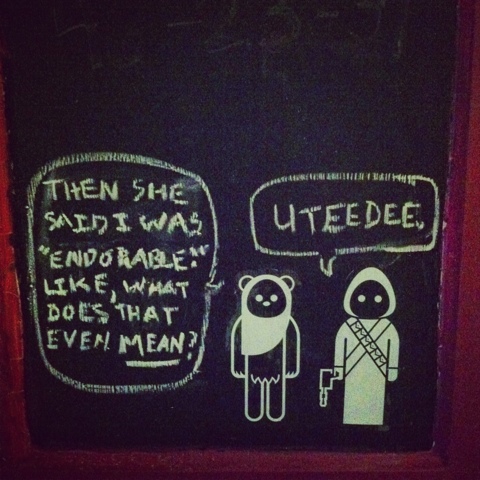 THEN SHE
SAID I WAS
"ENDORABLE."
LIKE, WHAT
DOES THAT
EVEN MEAN?
UTEEDEE.